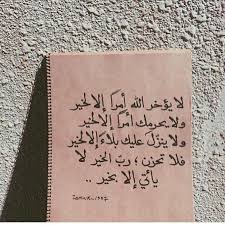 لا يؤخر الله أمرًا إلا لخير
ولا يحرمك أمرًا إلا لخير
ولا ينزل عليك بلاء إلا لخير
فلا تحزن ؛ ربّ الخير لا
يأتي إلا بخير ..